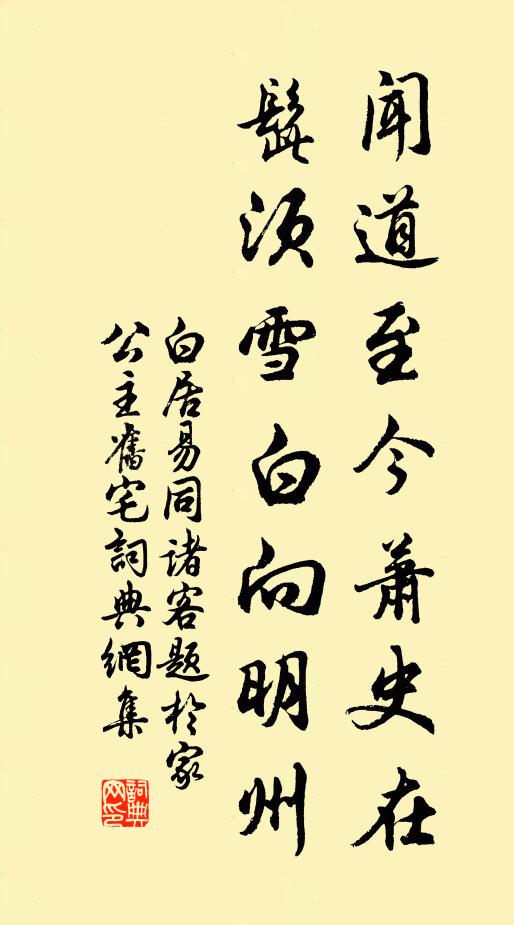 闻道至今萧史在
髭须雪白向明州
白居易同诸客题於家
公主旧宅词典网集
詞典
网印